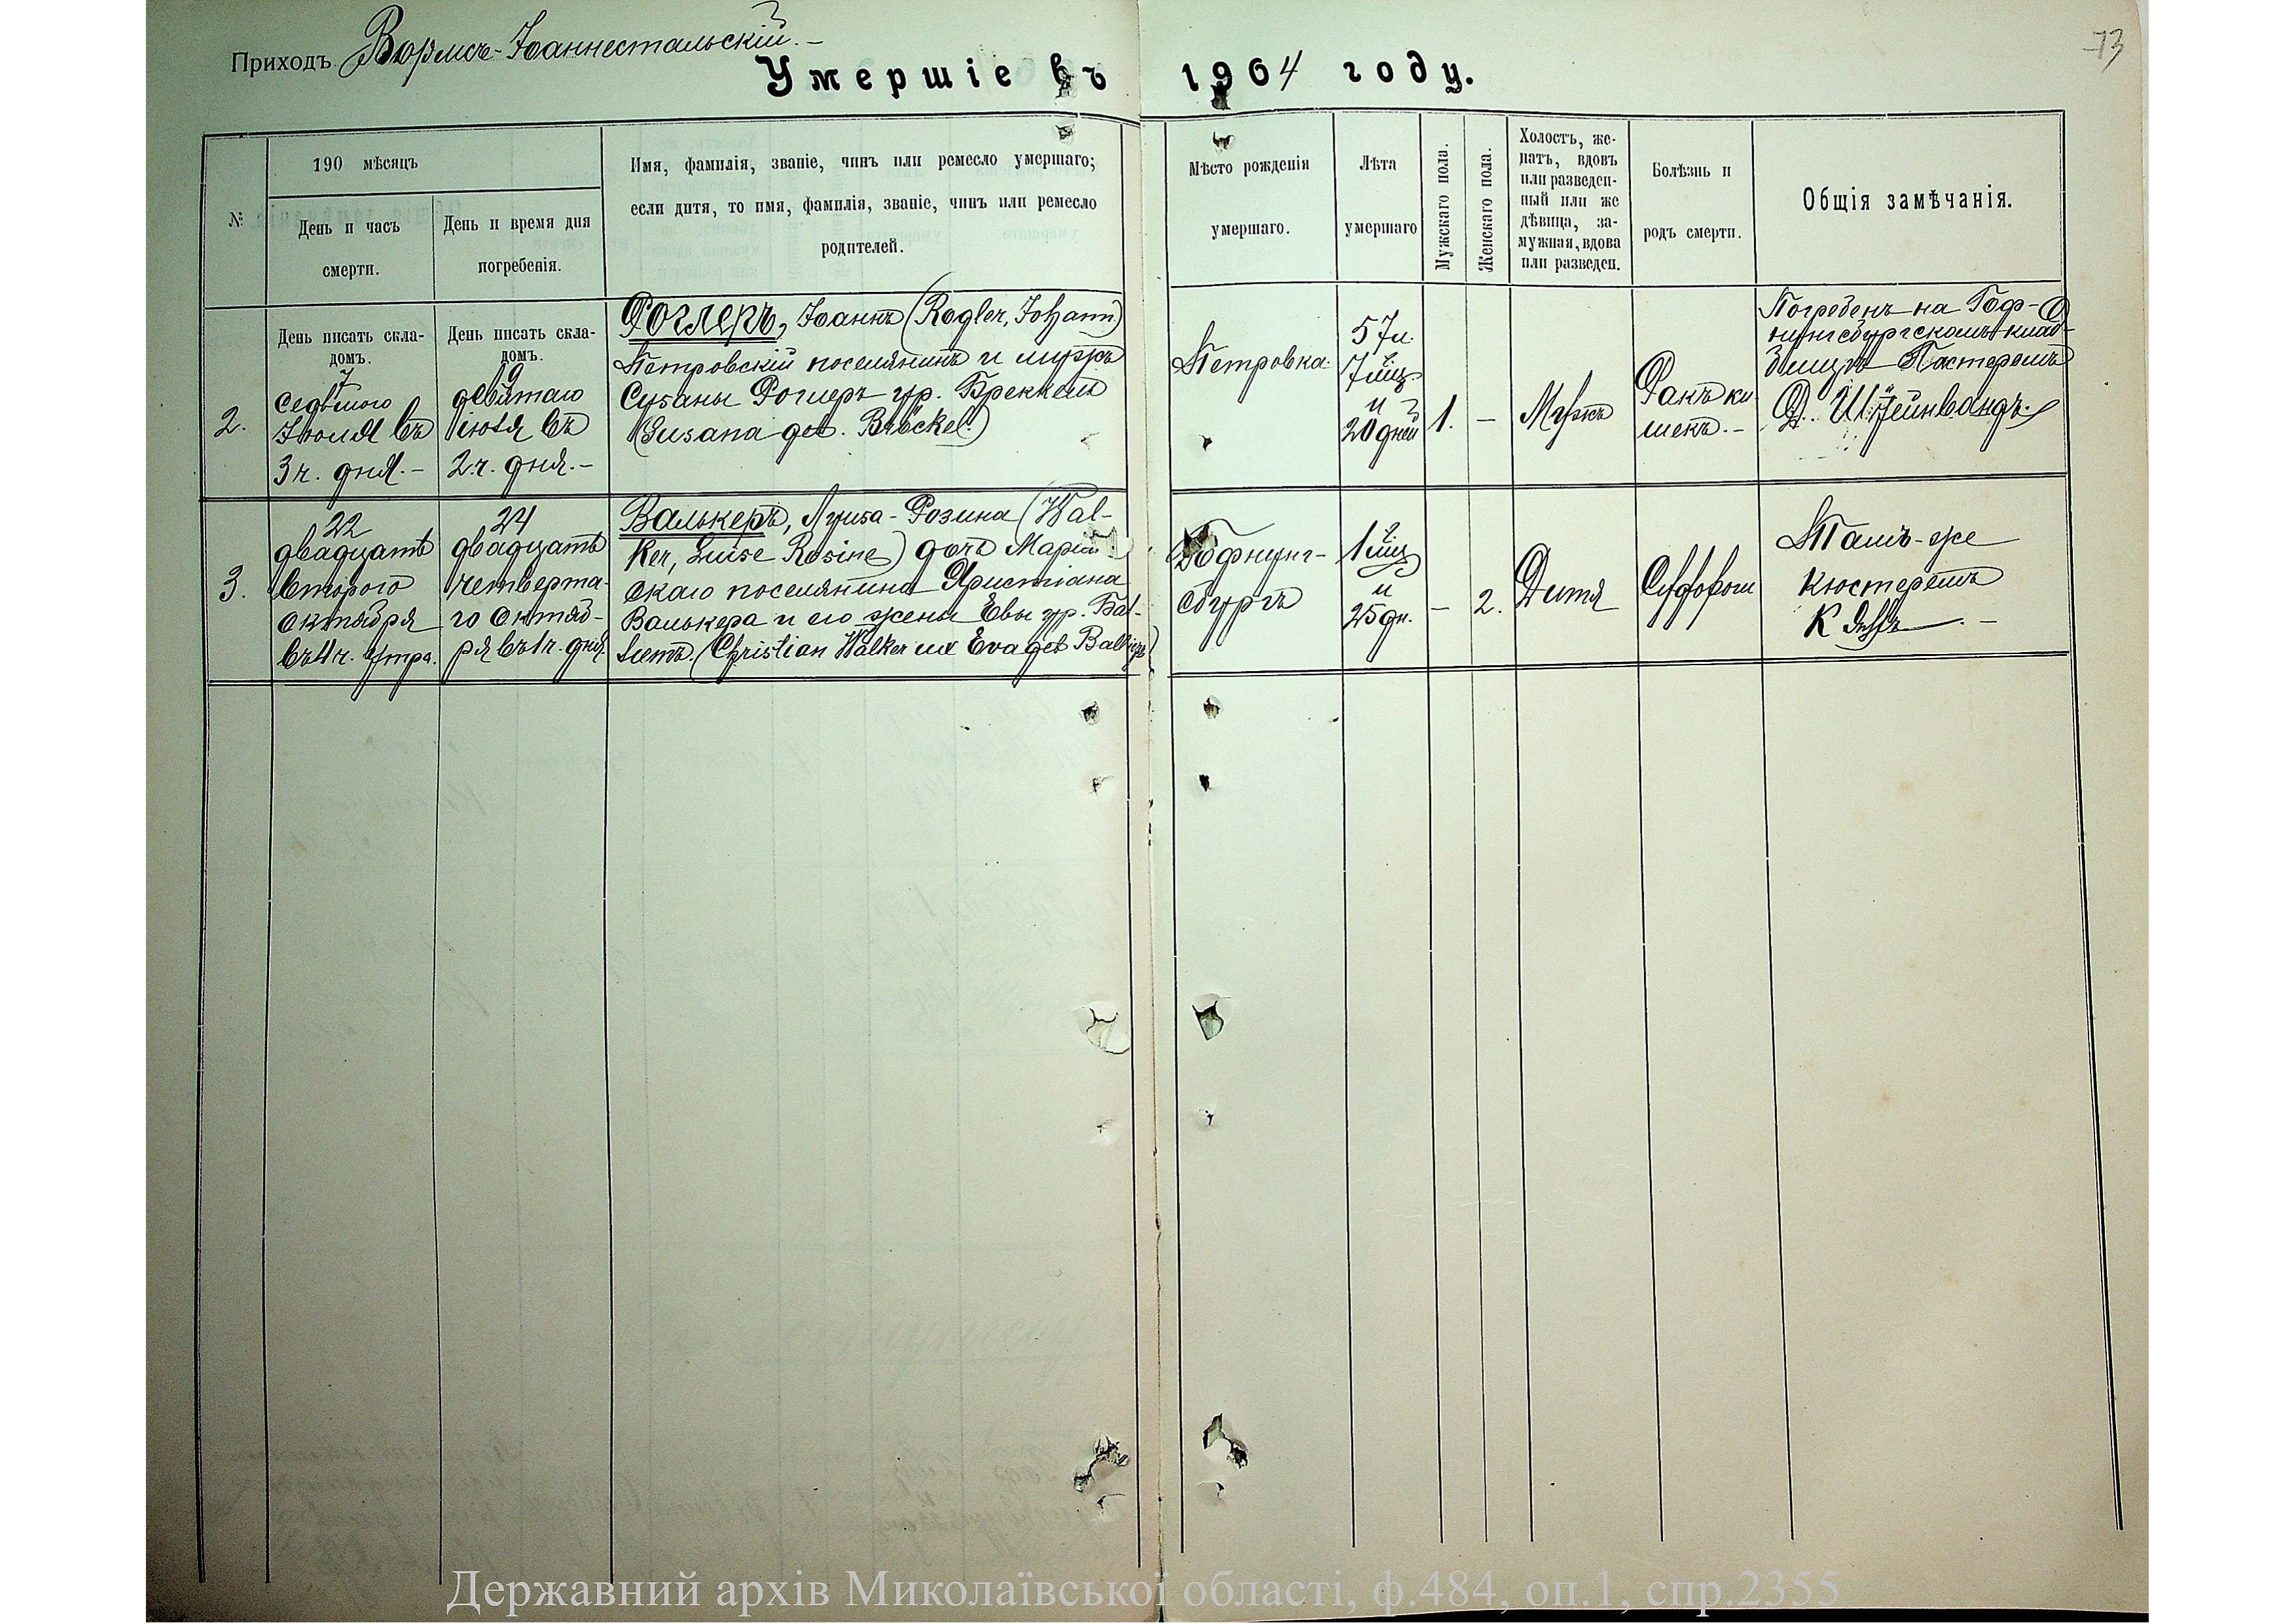 Приходъ Вормсъ-Іоаннестальскій.-
73
Умершіе въ 1904 году.
№
190 мѣсяцъ
День и часъ
смерти.
День и время дня
погребенія.
Имя, фамилія, званіе, чинъ или ремесло умершаго;
если дитя, то имя, фамилія, званіе, чинъ или ремесло
родителей.
Мѣсто рожденія
умершаго.
Лѣта
умершаго
Мужскаго пола.
Женскаго пола.
Холостъ, же-
натъ, вдовъ
или разведен-
ный или же
дѣвица, за-
мужняя, вдова
или разведен.
Болѣзнь и
родъ смерти.
Общія замѣчанія.
2.
День писать скла-
домъ.
7
седьмого
Іюля въ
3 ч. дня.-
День писать скла-
домъ.
9
девятаго
іюля въ
2 ч. дня.-
Роглеръ, Іоаннъ (Rogler, Johann)
Петровскій поселянинъ и мужъ
Сузаны Роглеръ ур. Бреккель
(Susana geb. Bröckel)
Петровка.
57 л.
7 мц.
и
20 дней
1.
-
Мужъ
Ракъ ки-
шекъ.-
Погребенъ на Гоф-
нунгсбургскомъ клад-
бищѣ Пастеромъ
Д. Штейнвандъ.
3.
22
двадцать
второго
октября
въ 4 ч. утра.
24
двадцать
четверта-
го октяб-
ря въ 1 ч. дня.
Валькеръ, Луиза-Розина (Wal-
ker, Luise Rosine) дочь Маріин-
скаго поселянина Христіана
Валькера и его жены Евы ур. Бал-
(Christian Walker und Eva geb.
Гофнунг-
сбургъ
1 мц
и
25 дн.
-
2.
Дитя
Тамъ-же
кюстеромъ
Державний архів Миколаївської області, ф.484, оп.1, спр.2355